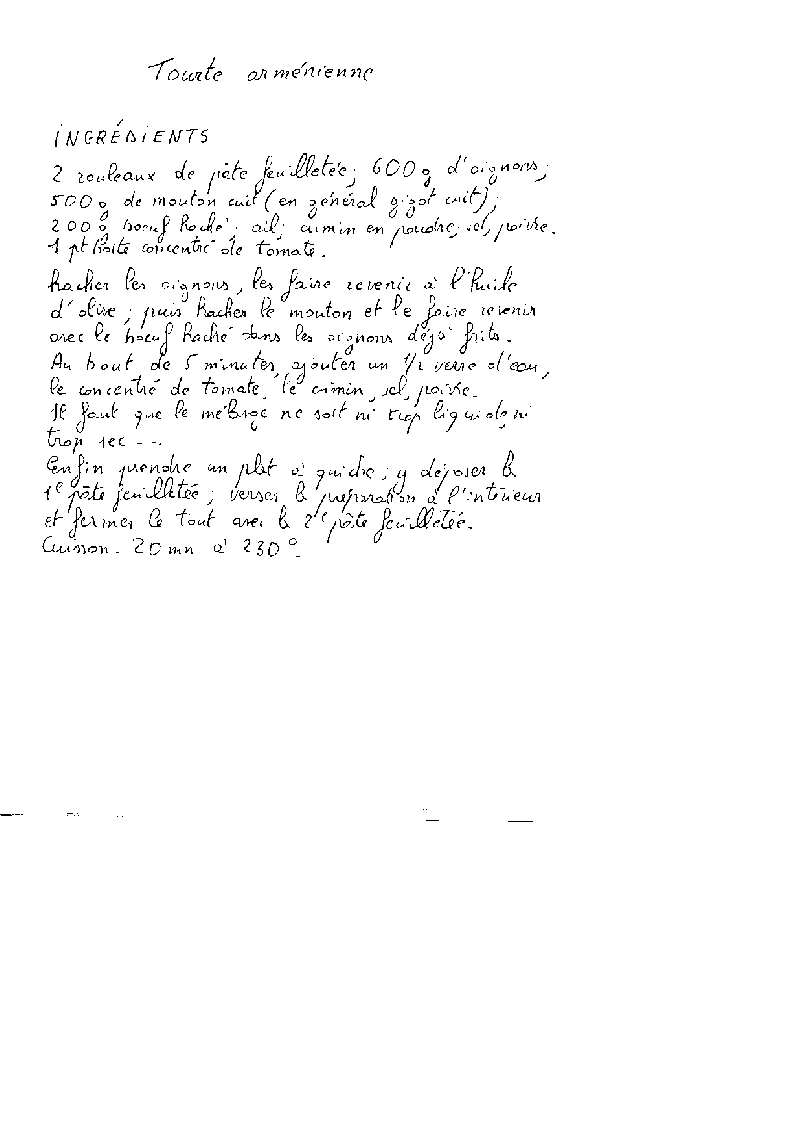 Tourte arménienne
INGRÉDIENTS
2 rouleaux de pâte feuilletée; 600 g d'oignons;
500 g de mouton cuit (en général gigot cuit);
200 g boeuf haché; ail; cumin en poudre; sel, poivre.
1 pt boite concentré de tomate.
Hacher les oignons, les faire revenir à l'huile
d'olive; puis hacher le mouton et le faire revenir
avec le boeuf haché dans les oignons déjà frits.
Au bout de 5 minutes, ajouter un 1/2 verre d'eau,
le concentré de tomate, le cumin, sel, poivre.
Il faut que le mélange ne soit ni trop liquide ni
trop sec ---
Enfin prendre un plat à quiche; y déposer la
1e pâte feuilletée; verser la préparation à l'intérieur
et fermer le tout avec la 2e pâte feuilletée.
Cuisson. 20 mn à 230°.